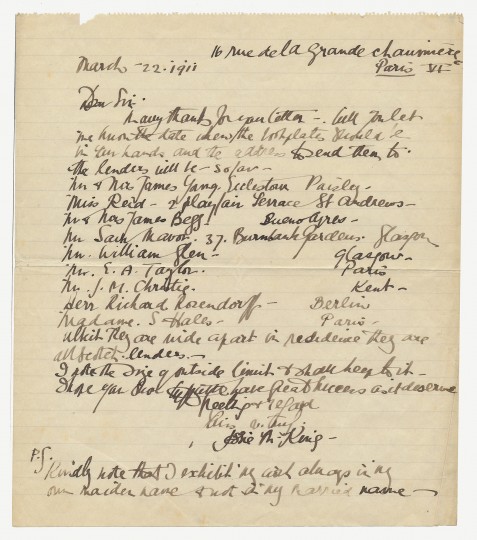 16 rue de la Grande Chaumière
Paris VI
March - 22 - 1911
Dear Sir.
Many thanks for your letter -. Will you let
me know the date when the bookplates should be
in your hands and the address to send them to.
the lenders will be - so far -
Mr & Mrs James Yang. Paisley -
Miss Reid - 2 Playfair Terrace St Andrews -
Mr & Mrs James Begg Buenos Ayres -
Mr Sam Mavor. 37. Burnbank Gardens. Glasgow
Mr. William Glen - Glasgow -
Mr. E. A. Taylor. Paris
Mr. J. M. Christie. Kent -
Herr Richard Rosendorff - Berlin
Madame. S Hales - Paris -
while they are wide apart in residence they are
all Scotch lenders. -
I note the size of outside limit & shall keep to it -
I hope you have great success and deserve
greeting & regard
Jessie M. King -
P.S.
Kindly note that I exhibit my work always in my
own maiden name & not in my married name -